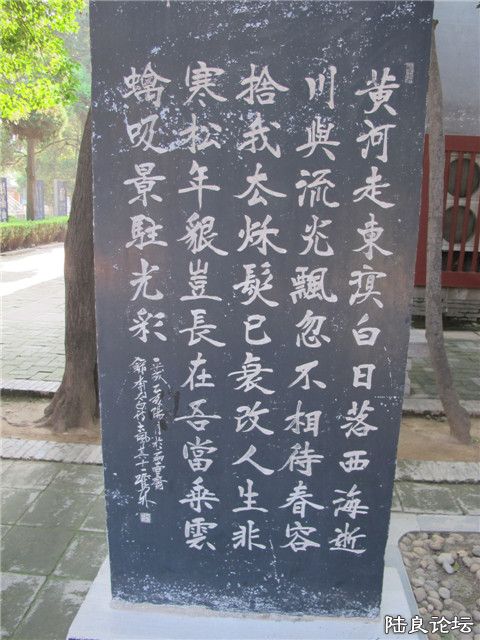 黄河走東溟白日落西海逝
川與流光飄忽不相待春容
捨我去秌髮已衰改人生非
寒松年貇豈長在吾當乘雲
螭吸景駐光彩
陆良论坛